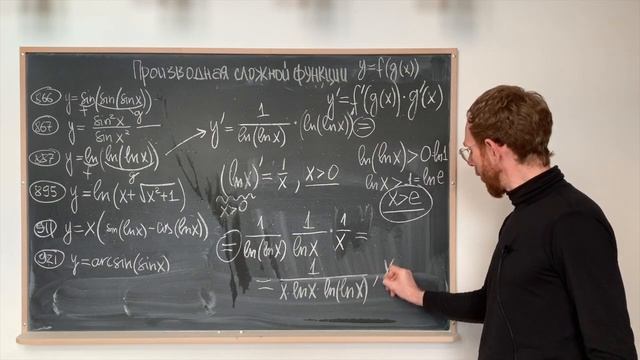 Производная сложной функции y=f(g(x))
y'=f'(g(x))·g'(x)
866 y=sin(sin(sinx))
f g
867 y=sin²x/sinx²
887 y=ln(ln(lnx))
f g
895 y=ln(x+√(x²+1))
911 y=x(sin(lnx)-cos(lnx))
921 y=arcsin(sinx)
y'=1/ln(lnx)·(ln(lnx))'=
(lnx)'=1/x, x>0
x>0
=1/ln(lnx)·1/lnx·1/x=
=1/(x·lnx·ln(lnx)),
ln(lnx)>0=ln1
lnx>1=lne
x>e